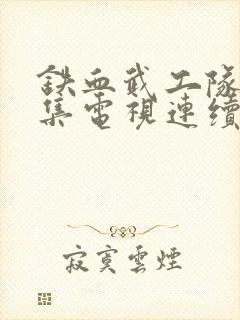 铁血武工隊
集電視連續
寂寞雲煙